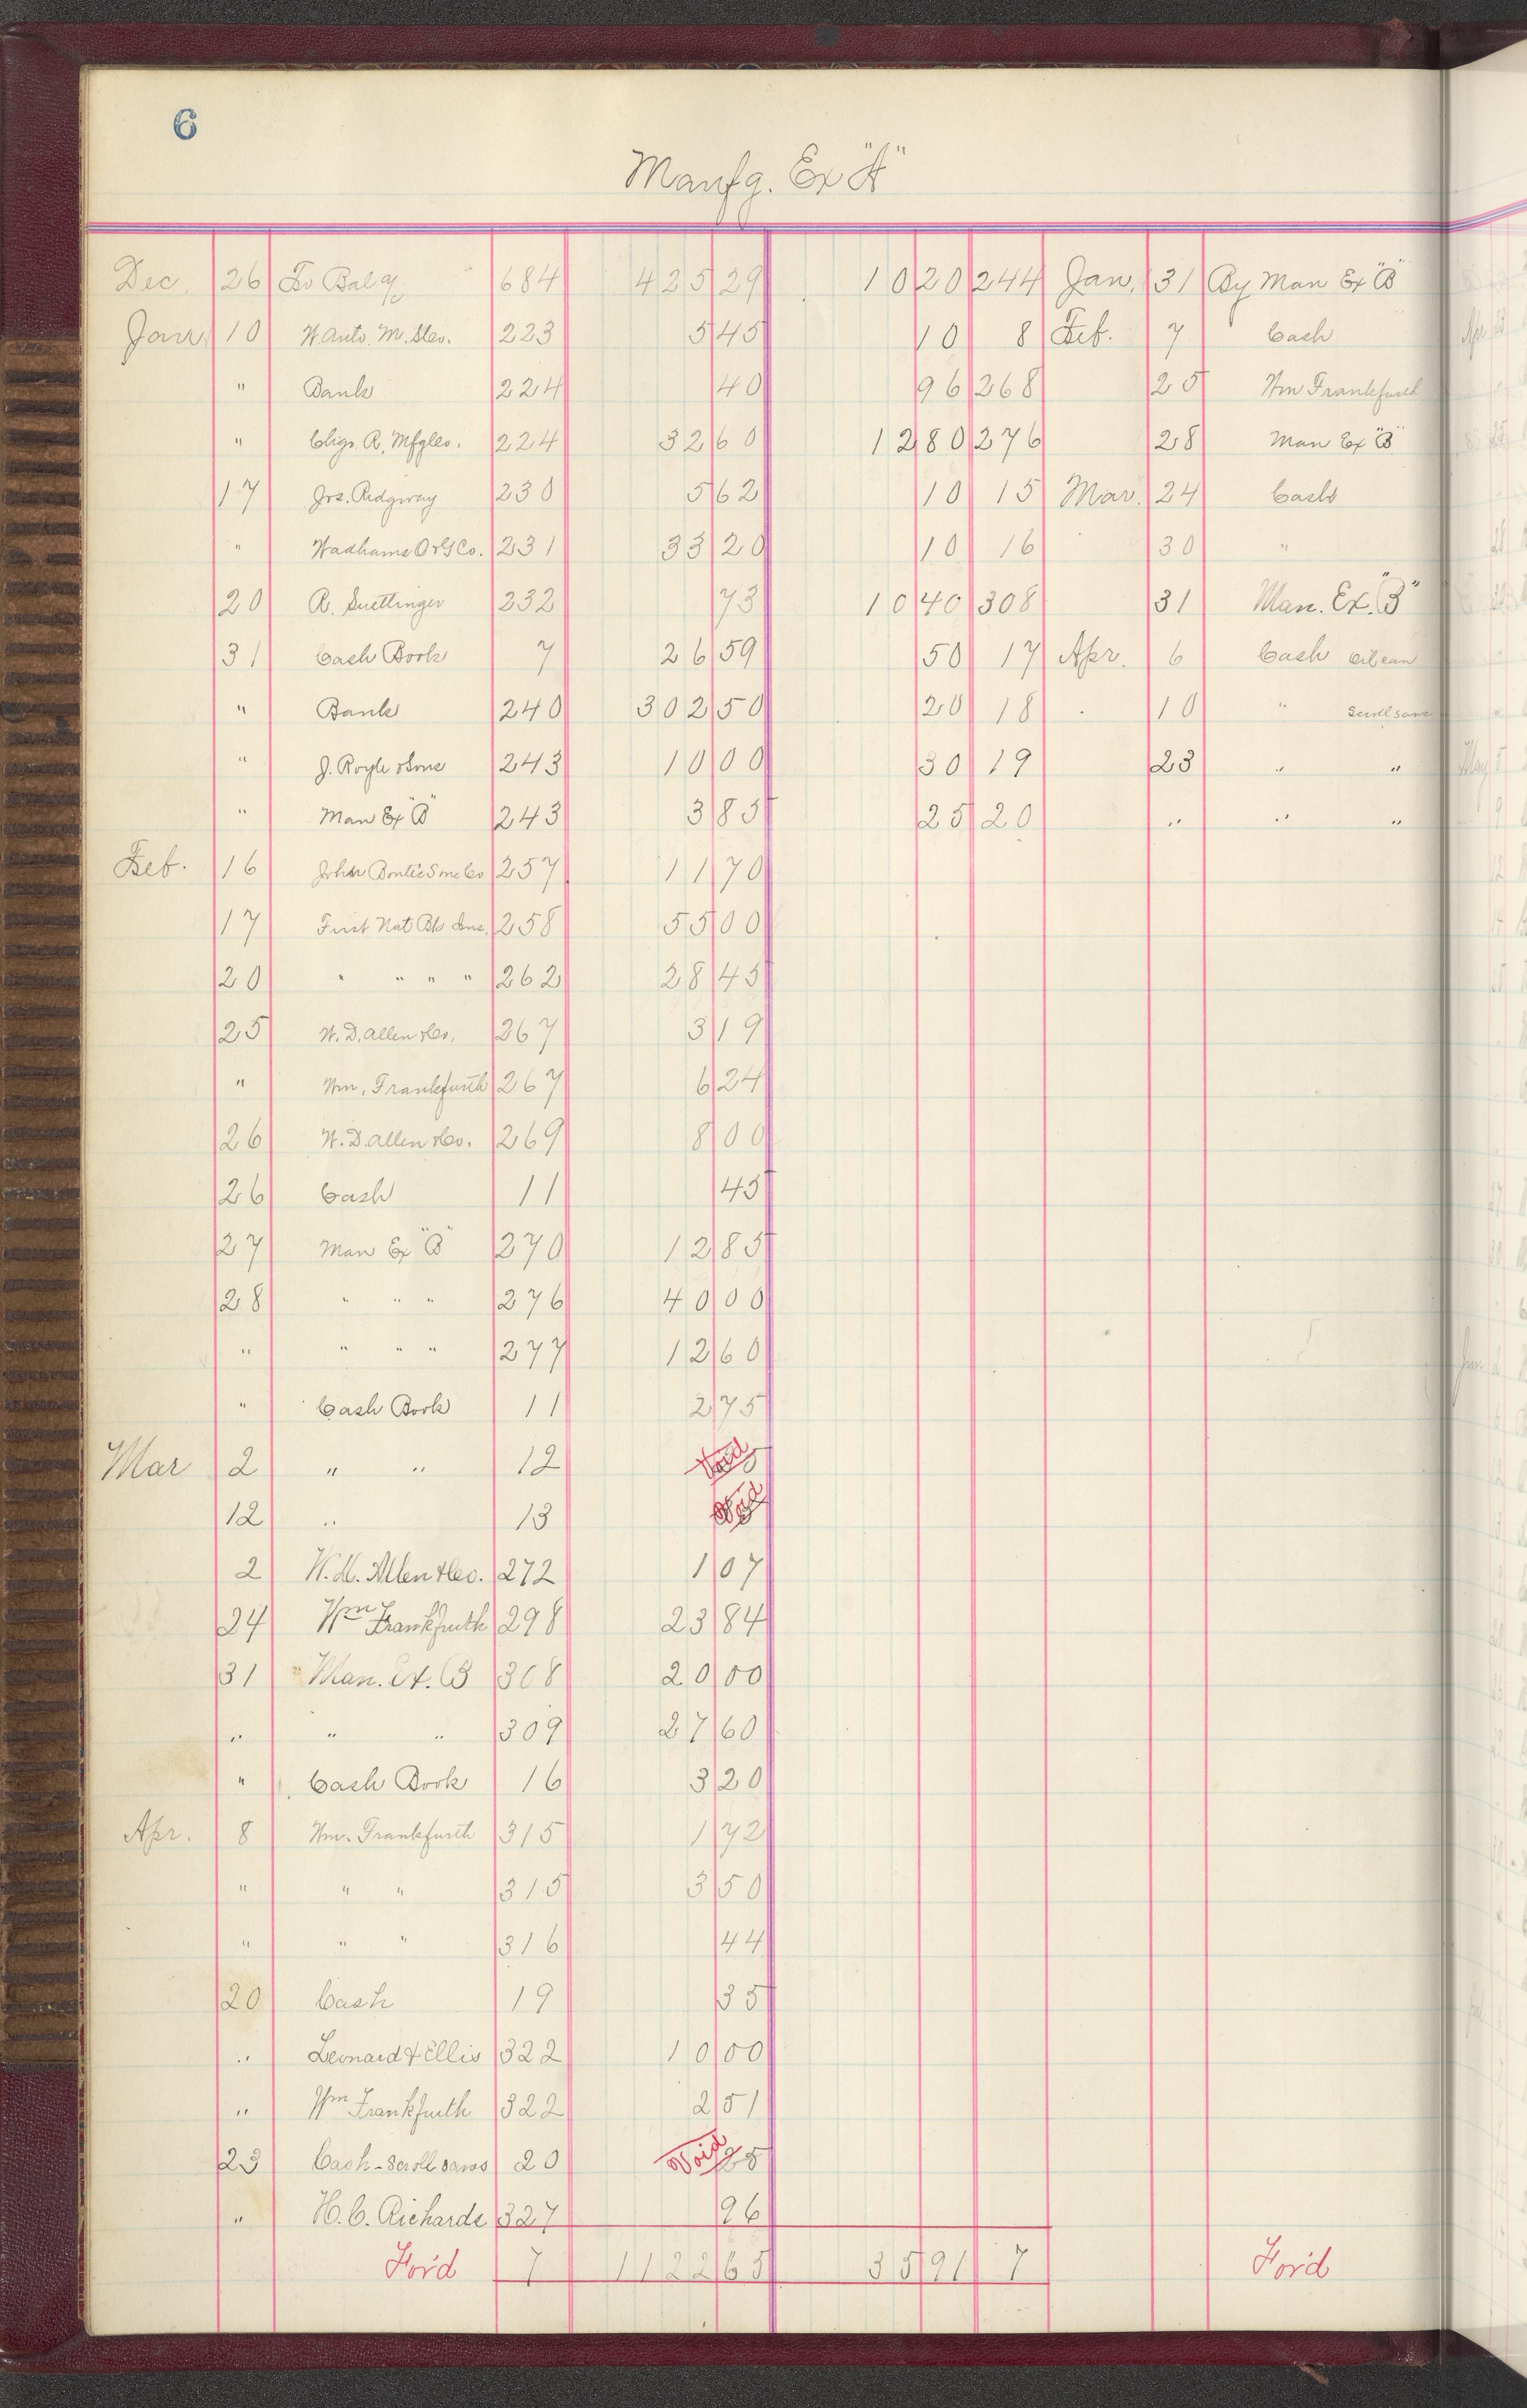 6
Manfg. Ex "A"
Dec. 26 To Bal 684 425 29 10 20 244 Jan. 31 By Man Ex "B"
Jan 10 W. Auto. M. 223 5 45 10 8 Feb. 7 Cash
" Bank 224 40 96 268 25 Wm Frankfurth
" R. Mfg Co. 224 32 60 12 80 276 28 Man Ex "B"
17 Jos. Ridgway 230 5 62 10 15 Mar. 24 Cash
" Wadhams O & G Co. 231 33 20 10 16 30 "
20 R. Suettinger 232 73 10 40 308 31 Man. Ex. "B"
31 Cash Book 7 26 59 50 17 Apr. 6 Cash oil can
" Bank 240 302 50 20 18 10 " Scroll saws
" J. Royle & Sons 243 10 00 30 19 23 " "
" Man Ex "B" 243 3 85 25 20 " " "
Feb. 16 John 257 11 70
17 First Nat Bk 258 55 00
20 " " " " 262 28 45
25 W. D. Allen & Co. 267 3 19
" Wm. Frankfurth 267 6 24
26 W. D. Allen & Co. 269 8 00
26 Cash 11 45
27 Man Ex "B" 270 12 85
28 " " " 276 40 00
" " " " 277 12 60
" Cash Book 11 2 75
Mar 2 " " 12 Void
12 " 13 Void
2 W. D. Allen & Co. 272 1 07
24 Wm Frankfurth 298 23 84
31 Man. Ex. B 308 20 00
" " " 309 27 60
" Cash Book 16 3 20
Apr. 8 Wm. Frankfurth 315 1 72
" " " 315 3 50
" " " 316 44
20 Cash 19 35
" Leonard & Ellis 322 10 00
" Wm Frankfurth 322 2 51
23 Cash - Scroll saws 20 Void 25
" H. C. Richards 327 96
For'd 7 1122 65 35 91 7 For'd